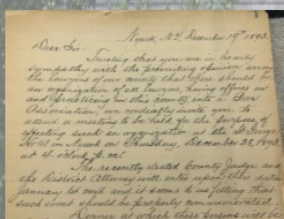 Nyack, N.Y. December 19th 1893.
Dear Sir:
Trusting that you are in hearty
sympathy with the prevailing opinion among
the lawyers of our county that there should be
an organization of all lawyers, having offices in
and practicing in this county, into a Bar
Association, we cordially invite you to
attend a meeting to be held for the purpose of
effecting such an organization at the St. George
Hotel in Nyack on Thursday, December 28, 1893,
at 4 o'clock P.M.
The recently elected County Judge and
the District Attorney will enter upon their duties
January 1st next and it seems to us fitting that
such event should be properly commemorated.
Dinner at which these persons will be